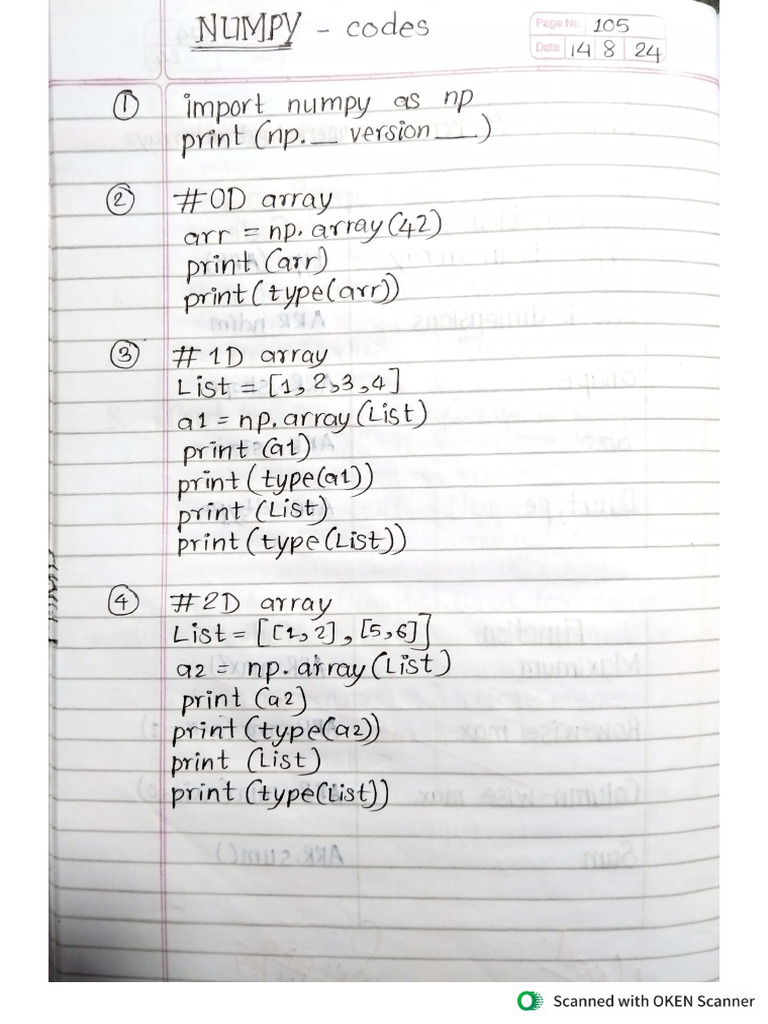 NUMPY - codes
Page No. 105
Date 14 8 24
① import numpy as np
print (np. __ version __.)
② #0D array
arr = np. array (42)
print (arr)
print (type (arr))
③ # 1D array
List = [1, 2, 3, 4]
a1 = np. array (List)
print (a1)
print (type(a1))
print (List)
print (type (List))
④ #2D array
List = [[1, 2] , [5, 6]]
a2 = np. array (List)
print (a2)
print (type(a2))
print (List)
print (type(List))
Scanned with OKEN Scanner